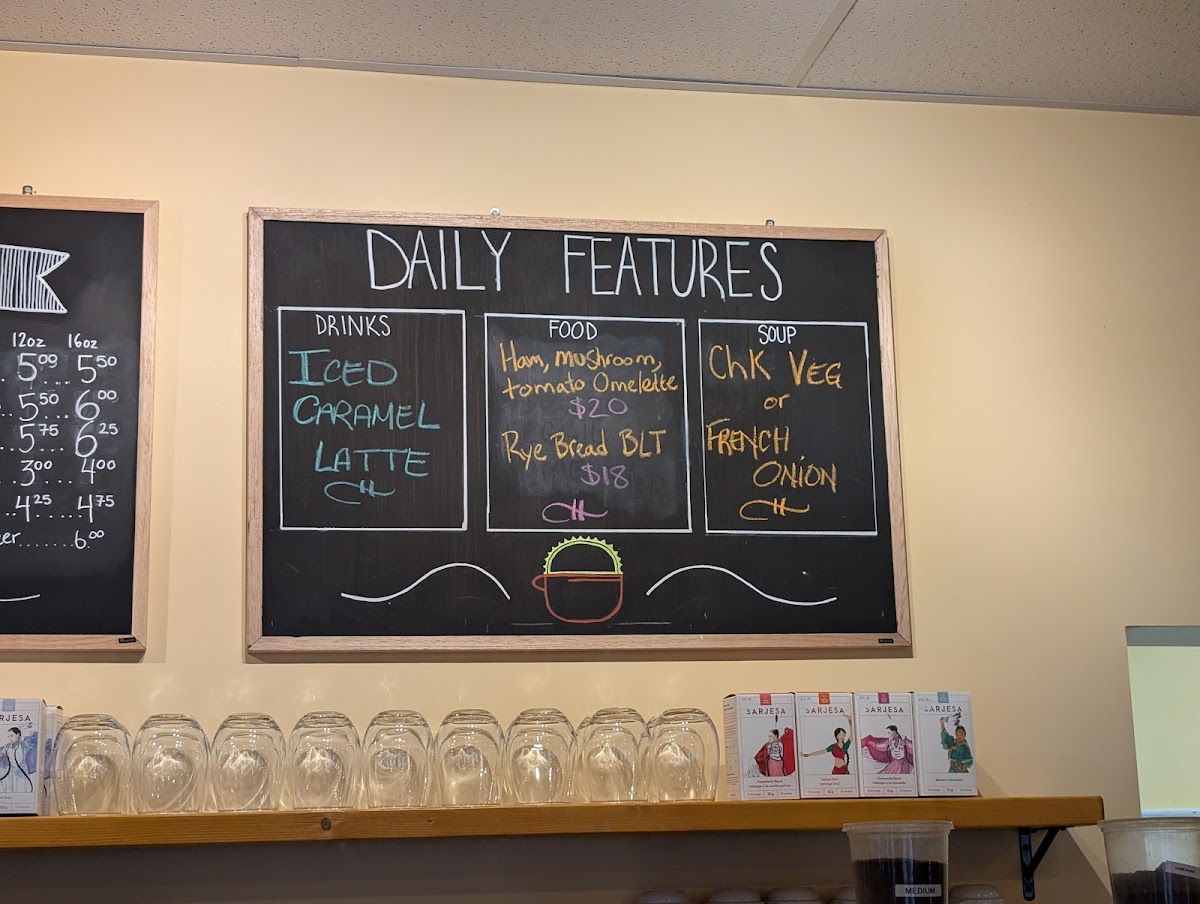 12oz 16oz
5.00....5.50
5.50...6.00
5.75 6.25
3.00....4.00
4.25.....4.75
eer.......6.00
DAILY FEATURES
DRINKS
ICED
CARAMEL
LATTE
FOOD
Ham, mushroom,
tomato Omelette
$20
Rye Bread BLT
$18
SOUP
ChK VEG
or
FRENCH
ONION
RJESA
SARJESA
SARJESA
SARJESA
SARJESA
MEDIUM